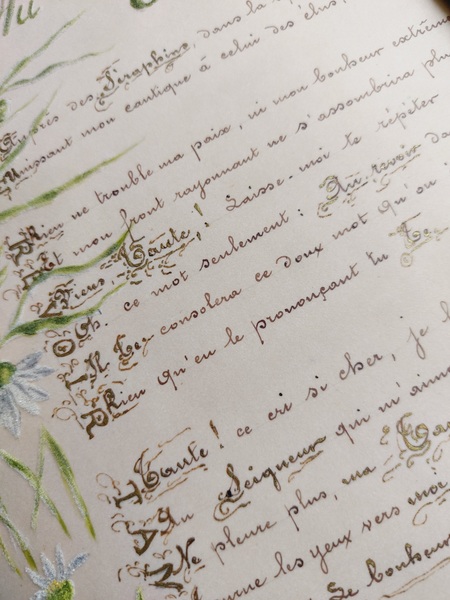 Auprès des Séraphins, dans la
Unissant mon cantique à celui des élus,
Rien ne trouble ma paix, ni mon bonheur extrême
Et mon front rayonnant ne s'assombrira plus
Tante! Laisse-moi te répéter
Oh. ce mot seulement: Au revoir
Il te consolera ce doux mot qu'on
Rien qu'en le prononçant tu
Tante! ce cri si cher, je l
Au Seigneur qui m'aime
Ne pleure plus, ma
les yeux vers moi
Le bonheur